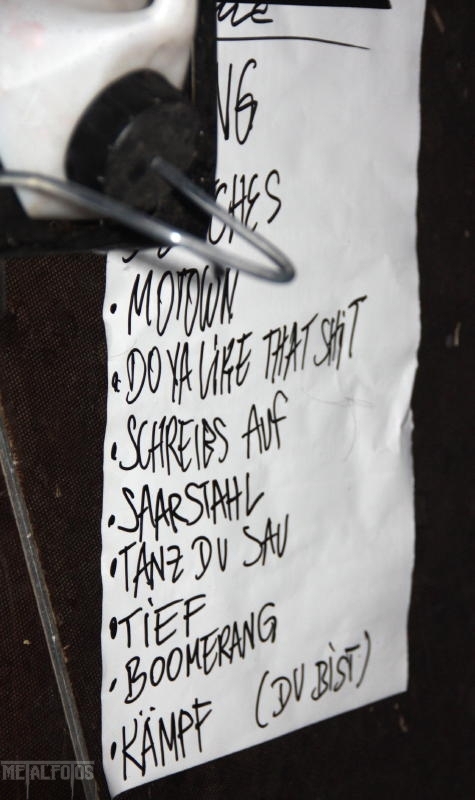 • MOTOWN
• DO YA LIKE THAT SHiT
• SCHREIBS AUF
• SAARSTAHL
• TANZ DU SAU
• TiEF
• BOOMERANG
• KÄMPF (DU BiST)
METALFOTOS